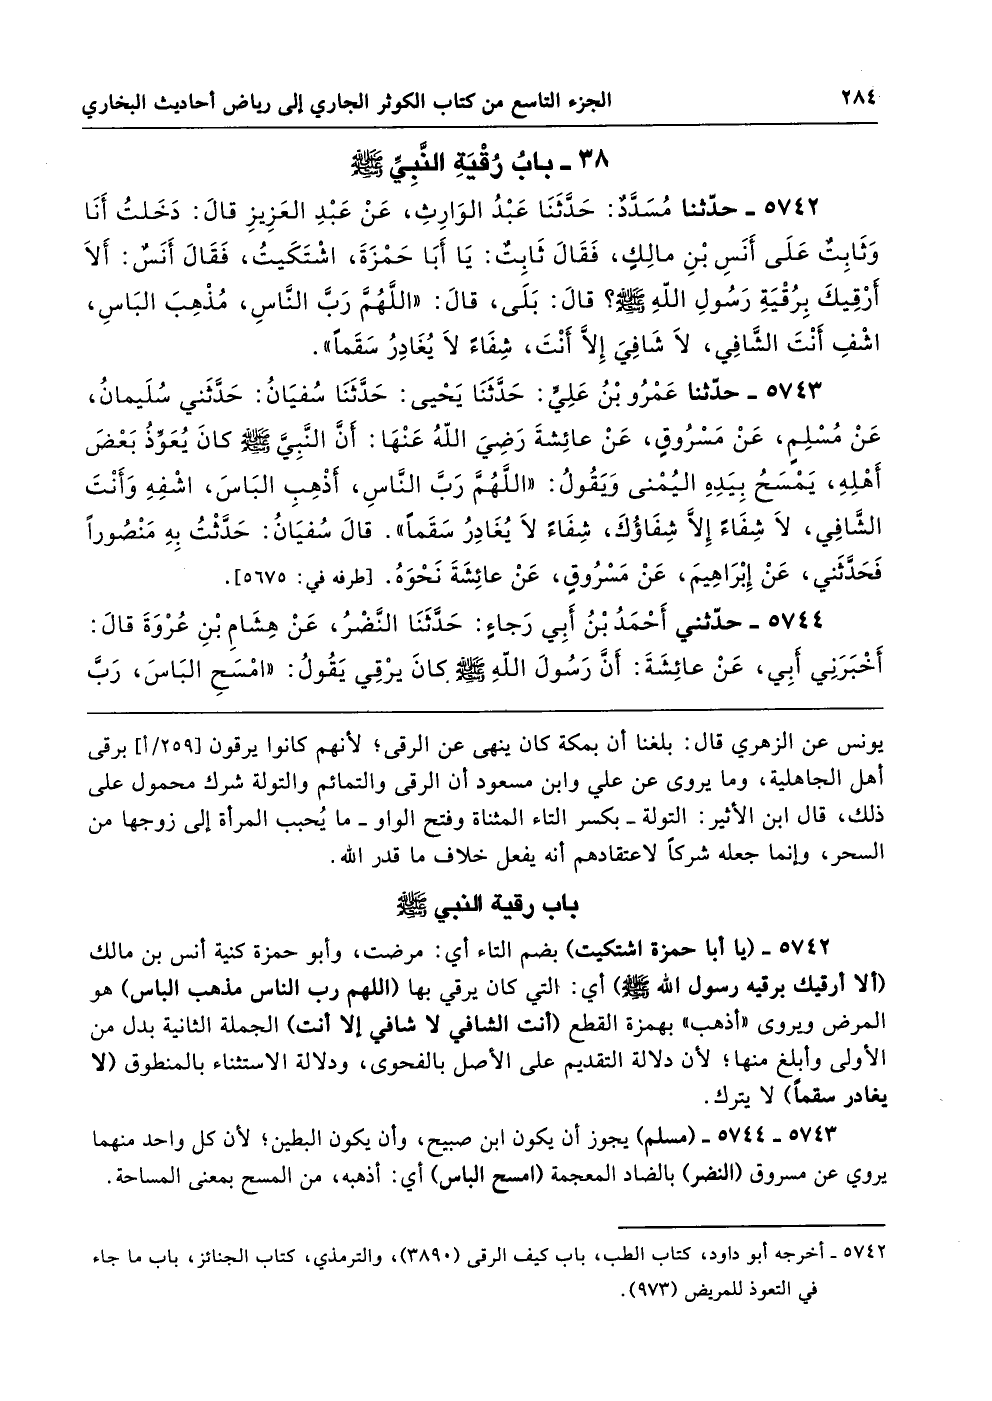 ٢٨٤
الجزء التاسع من كتاب الكوثر الجاري إلى رياض أحاديث البخاري
٣٨ ـ بابُ رُقْيَةِ النَّبِيِّ ﷺ
٥٧٤٢ ـ حدّثنا مُسَدَّدٌ: حَدَّثَنَا عَبْدُ الوَارِثِ، عَنْ عَبْدِ العَزِيزِ قالَ: دَخَلتُ أَنَا
وَثَابِتٌ عَلَى أَنَسِ بْنِ مالِكٍ، فَقَالَ ثَابِتٌ: يَا أَبَا حَمْزَةَ، اشْتَكَيتُ، فَقَالَ أَنَسٌ: أَلاَ
أَرْقِيكَ بِرُقْيَةِ رَسُولِ اللّهِ ﷺ؟ قالَ: بَلَى، قالَ: «اللَّهُمَّ رَبَّ النَّاسِ، مُذْهِبَ البَاسِ،
اشْفِ أَنْتَ الشَّافِي، لاَ شَافِيَ إِلاَّ أَنْتَ، شِفَاءً لاَ يُغَادِرُ سَقَماً».
٥٧٤٣ ـ حدّثنا عَمْرُو بْنُ عَلِيٍّ: حَدَّثَنَا يَحْيى: حَدَّثَنَا سُفيَانُ: حَدَّثَني سُلَيمانُ،
عَنْ مُسْلِمٍ، عَنْ مَسْرُوقٍ، عَنْ عائِشةَ رَضِيَ اللّهُ عَنْهَا: أَنَّ النَّبِيَّ ﷺ كانَ يُعَوِّذُ بَعْضَ
أَهْلِهِ، يَمْسَحُ بِيَدِهِ اليُمْنى وَيَقُولُ: «اللَّهُمَّ رَبَّ النَّاسِ، أَذْهِبِ البَاسَ، اشْفِهِ وَأَنْتَ
الشَّافِي، لاَ شِفَاءَ إِلاَّ شِفَاؤُكَ، شِفَاءً لاَ يُغَادِرُ سَقَماً». قالَ سُفيَانُ: حَدَّثْتُ بِهِ مَنْصُوراً
فَحَدَّثَني، عَنْ إِبْرَاهِيمَ، عَنْ مَسْرُوقٍ، عَنْ عائِشَةَ نَحْوَهُ. [طرفه في: ٥٦٧٥].
٥٧٤٤ ـ حدّثني أَحْمَدُ بْنُ أَبِي رَجاءٍ: حَدَّثَنَا النَّضْرُ، عَنْ هِشَامِ بْنِ عُرْوَةَ قالَ:
أَخْبَرَنِي أَبِي، عَنْ عائِشَةَ: أَنَّ رَسُولَ اللّهِ ﷺ كانَ يَرْقِي يَقُولُ: «امْسَحِ البَاسَ، رَبَّ
يونس عن الزهري قال: بلغنا أن بمكة كان ينهى عن الرقى؛ لأنهم كانوا يرقون [٢٥٩/أ] برقى
أهل الجاهلية، وما يروى عن علي وابن مسعود أن الرقى والتمائم والتولة شرك محمول على
ذلك، قال ابن الأثير: التولة ـ بكسر التاء المثناة وفتح الواو ـ ما يُحبب المرأة إلى زوجها من
السحر، وإنما جعله شركاً لاعتقادهم أنه يفعل خلاف ما قدر الله.
باب رقية النبي ﷺ
٥٧٤٢ ـ (يا أبا حمزة اشتكيت) بضم التاء أي: مرضت، وأبو حمزة كنية أنس بن مالك
(ألا أرقيك برقيه رسول الله ﷺ) أي: التي كان يرقي بها (اللهم رب الناس مذهب الباس) هو
المرض ويروى «أذهب» بهمزة القطع (أنت الشافي لا شافي إلا أنت) الجملة الثانية بدل من
الأولى وأبلغ منها؛ لأن دلالة التقديم على الأصل بالفحوى، ودلالة الاستثناء بالمنطوق (لا
يغادر سقماً) لا يترك.
٥٧٤٣ ـ ٥٧٤٤ ـ (مسلم) يجوز أن يكون ابن صبيح، وأن يكون البطين؛ لأن كل واحد منهما
يروي عن مسروق (النضر) بالضاد المعجمة (امسح الباس) أي: أذهبه، من المسح بمعنى المساحة.
٥٧٤٢ ـ أخرجه أبو داود، كتاب الطب، باب كيف الرقى (٣٨٩٠)، والترمذي، كتاب الجنائز، باب ما جاء
في التعوذ للمريض (٩٧٣).